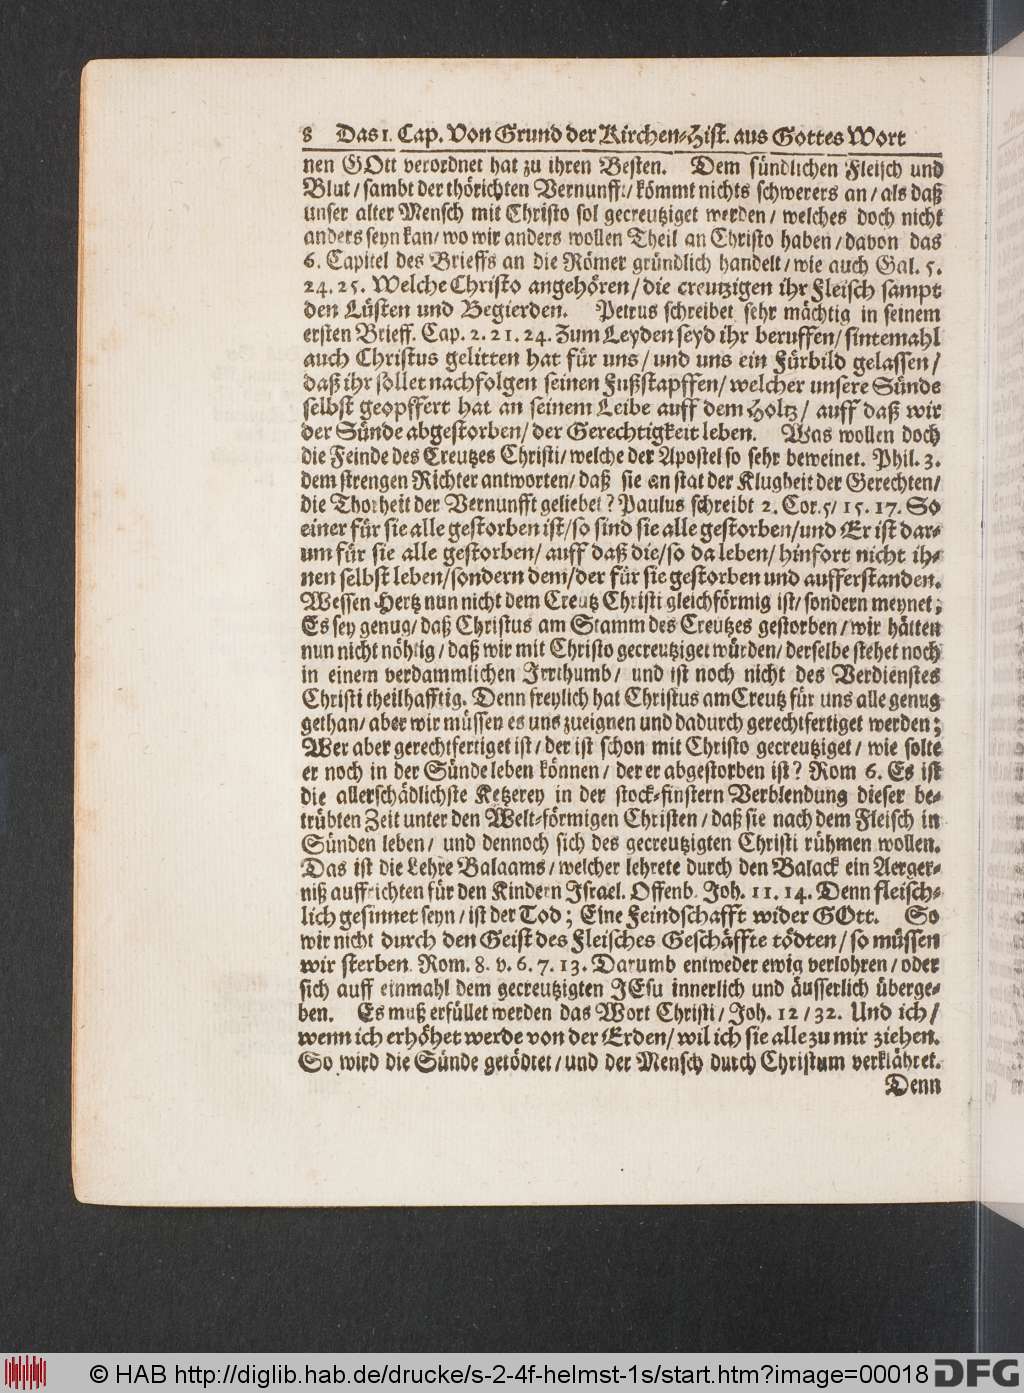 8 Das 1. Cap. Von Grund der Kirchen-Hist. aus Gottes Wort
nen GOtt verordnet hat zu ihren Besten. Dem sündlichen Fleisch und
Blut / sambt der thörichten Vernunfft / kömmt nichts schwerers an / als daß
unser alter Mensch mit Christo sol gecreutziget werden / welches doch nicht
anders seyn kan / wo wir anders wollen Theil an Christo haben / davon das
6. Capitel des Brieffs an die Römer gründlich handelt / wie auch Gal. 5.
24. 25. Welche Christo angehören / die creutzigen ihr Fleisch sampt
den Lüsten und Begierden. Petrus schreibet sehr mächtig in seinem
ersten Brieff. Cap. 2. 21. 24. Zum Leyden seyd ihr beruffen / sintemahl
auch Christus gelitten hat für uns / und uns ein Fürbild gelassen /
daß ihr sollet nachfolgen seinen Fußstapffen / welcher unsere Sünde
selbst geopffert hat an seinem Leibe auff dem Holtz / auff daß wir
der Sünde abgestorben / der Gerechtigkeit leben. Was wollen doch
die Feinde des Creutzes Christi / welche der Apostel so sehr beweinet. Phil. 3.
dem strengen Richter antworten / daß sie an stat der Klugheit der Gerechten /
die Thorheit der Vernunfft geliebet? Paulus schreibt 2. Cor. 5 / 15. 17. So
einer für sie alle gestorben ist / so sind sie alle gestorben / und Er ist dar-
um für sie alle gestorben / auff daß die / so da leben / hinfort nicht ih-
nen selbst leben / sondern dem / der für sie gestorben und aufferstanden.
Wessen Hertz nun nicht dem Creutz Christi gleichförmig ist / sondern meynet;
Es sey genug / daß Christus am Stamm des Creutzes gestorben / wir hätten
nun nicht nöhtig / daß wir mit Christo gecreutziget würden / derselbe stehet noch
in einem verdammlichen Irrthumb / und ist noch nicht des Verdienstes
Christi theilhafftig. Denn freylich hat Christus am Creutz für uns alle genug
gethan / aber wir müssen es uns zueignen und dadurch gerechtfertiget werden;
Wer aber gerechtfertiget ist / der ist schon mit Christo gecreutziget / wie solte
er noch in der Sünde leben können / der er abgestorben ist? Rom 6. Es ist
die allerschädlichste Ketzerey in der stock-finstern Verblendung dieser be-
trübten Zeit unter den Welt-förmigen Christen / daß sie nach dem Fleisch in
Sünden leben / und dennoch sich des gecreutzigten Christi rühmen wollen.
Das ist die Lehre Balaams / welcher lehrete durch den Balack ein Aerger-
niß auffrichten für den Kindern Israel. Offenb. Joh. 11. 14. Denn fleisch-
lich gesinnet seyn / ist der Tod; Eine Feindschafft wider GOtt. So
wir nicht durch den Geist des Fleisches Geschäffte tödten / so müssen
wir sterben. Rom. 8. v. 6. 7. 13. Darumb entweder ewig verlohren / oder
sich auff einmahl dem gecreutzigten JEsu innerlich und äusserlich überge-
ben. Es muß erfüllet werden das Wort Christi / Joh. 12 / 32. Und ich /
wenn ich erhöhet werde von der Erden / wil ich sie alle zu mir ziehen.
So wird die Sünde getödtet / und der Mensch durch Christum verklähret.
Denn
© HAB http://diglib.hab.de/drucke/s-2-4f-helmst-1s/start.htm?image=00018
DFG